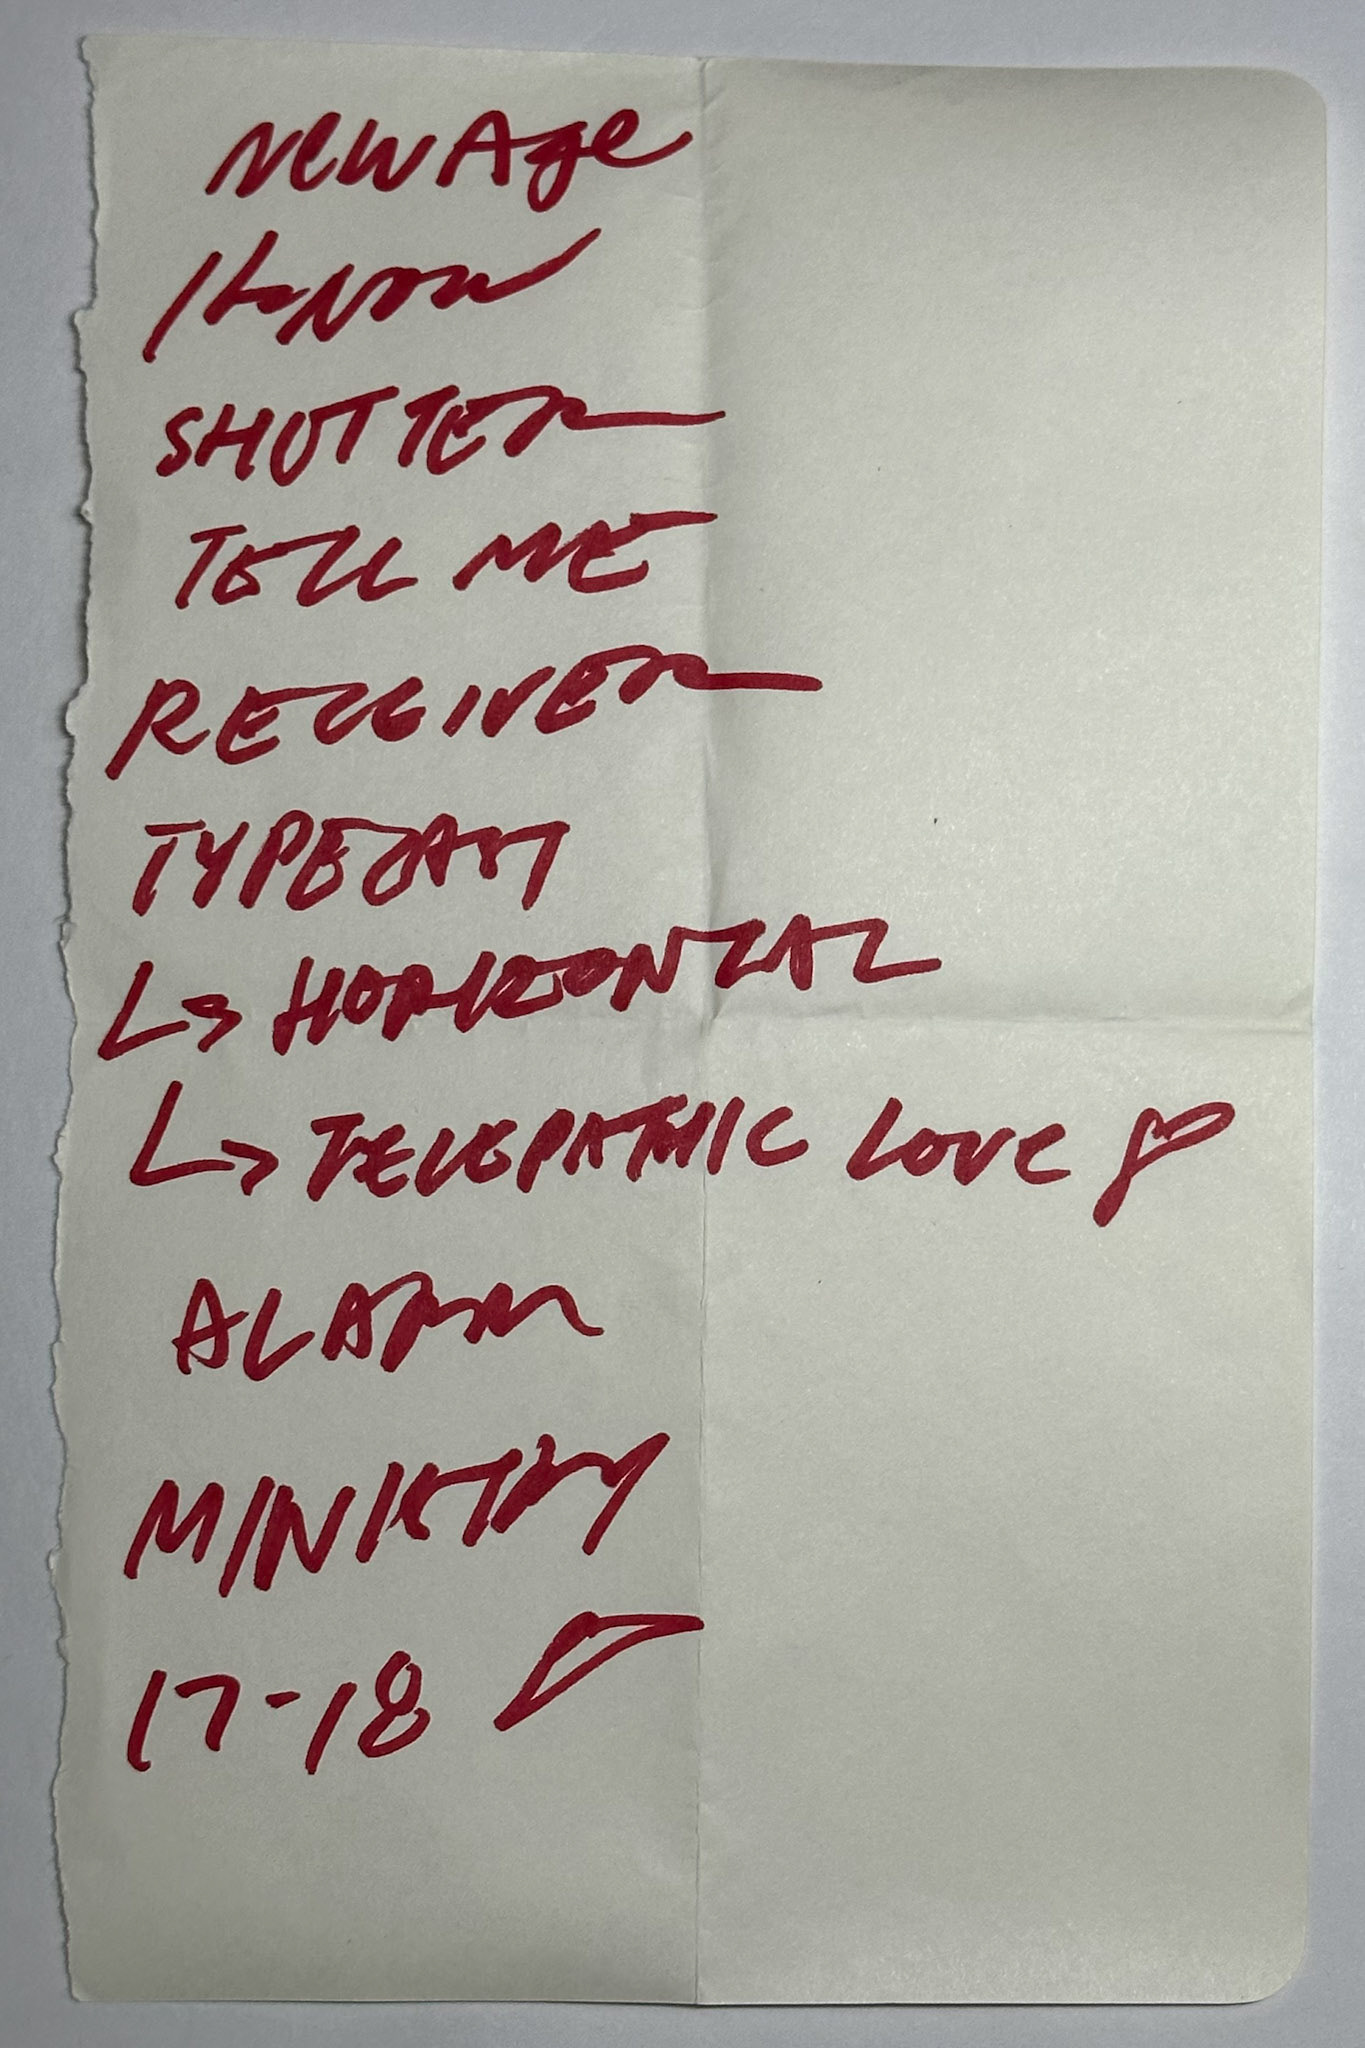 New Age
I Know
SHUTTER
TELL ME
RECEIVER
TYPECAST
↳ HORIZONTAL
↳ TELEPATHIC LOVE
ALARM
MINISTRY
17-18